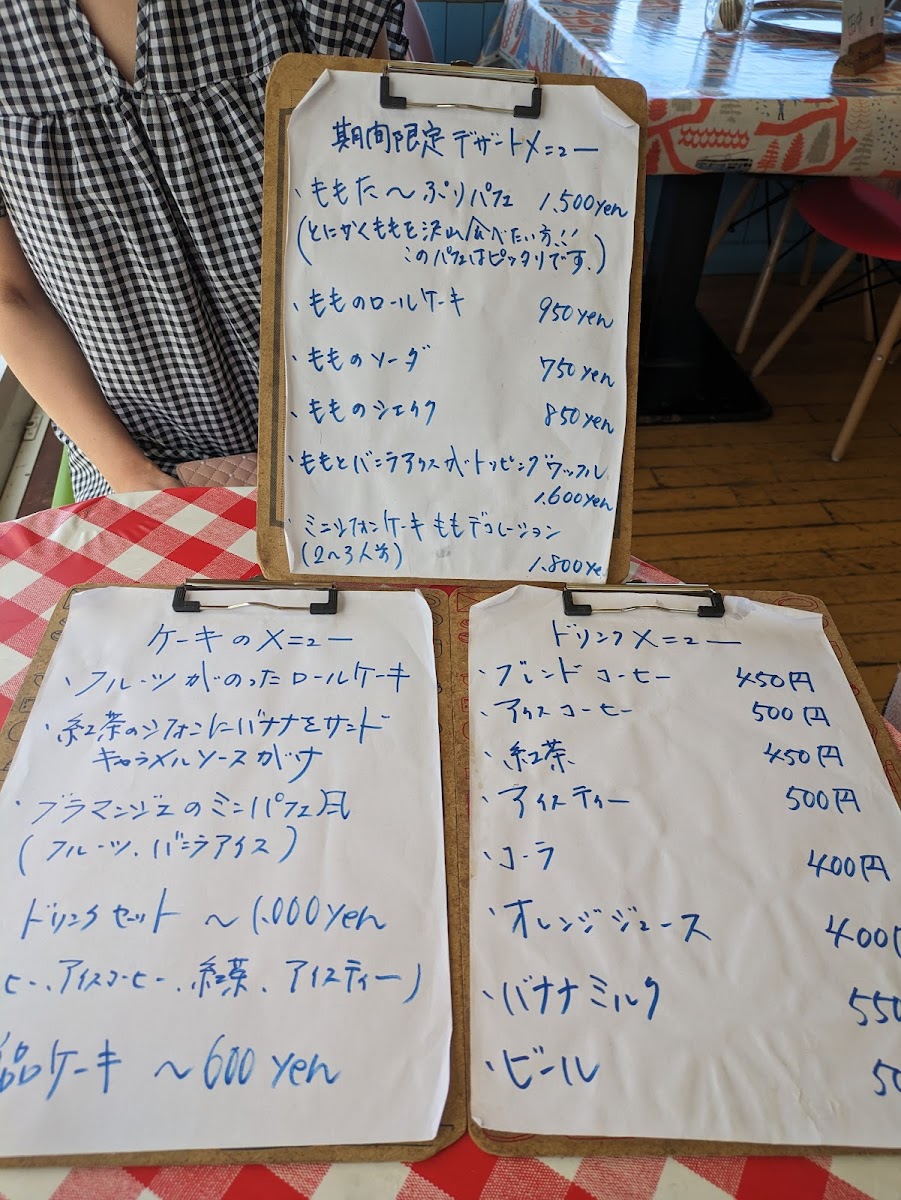 期間限定デザートメニュー
・ももた〜ぷりパフェ 1,500yen
(とにかくももを沢山食べたい方!!
このパフェはピッタリです。)
・もものロールケーキ 950yen
・もものソーダ 750yen
・もものシェイク 850yen
・ももとバニラアイスがトッピングワッフル
1,600yen
・ミニシフォンケーキ ももデコレーション
(2〜3人分) 1,800ye
ケーキのメニュー
・フルーツがのったロールケーキ
・紅茶のシフォンにバナナをサンド
キャラメルソースがけ
・ブラマンジェのミニパフェ風
(フルーツ、バニラアイス)
ドリンクセット 〜1,000yen
ヒー、アイスコーヒー、紅茶、アイスティー)
品ケーキ 〜600yen
ドリンクメニュー
・ブレンドコーヒー 450円
・アイスコーヒー 500円
・紅茶 450円
・アイスティー 500円
・コーラ 400円
・オレンジジュース 400
・バナナミルク 550
・ビール